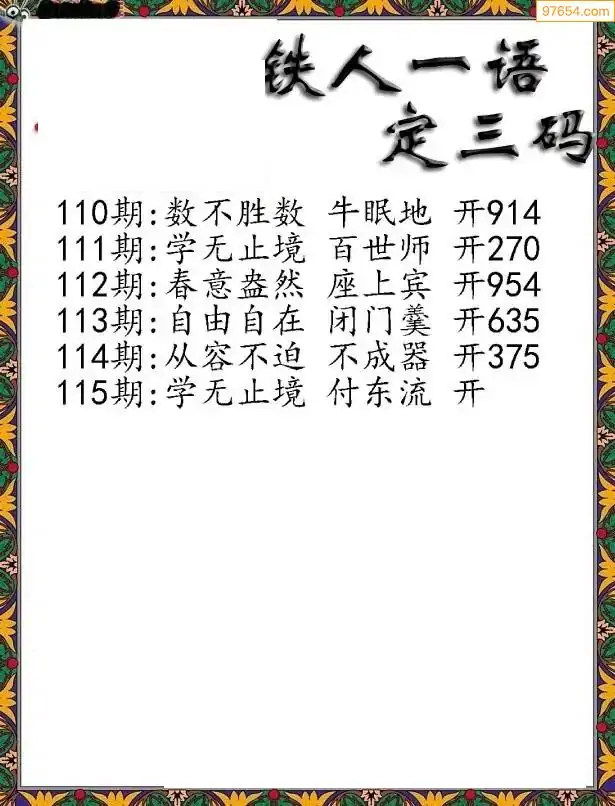 97654.com
铁人一语
定三码
110期:数不胜数 牛眠地 开914
111期:学无止境 百世师 开270
112期:春意盎然 座上宾 开954
113期:自由自在 闭门羹 开635
114期:从容不迫 不成器 开375
115期:学无止境 付东流 开